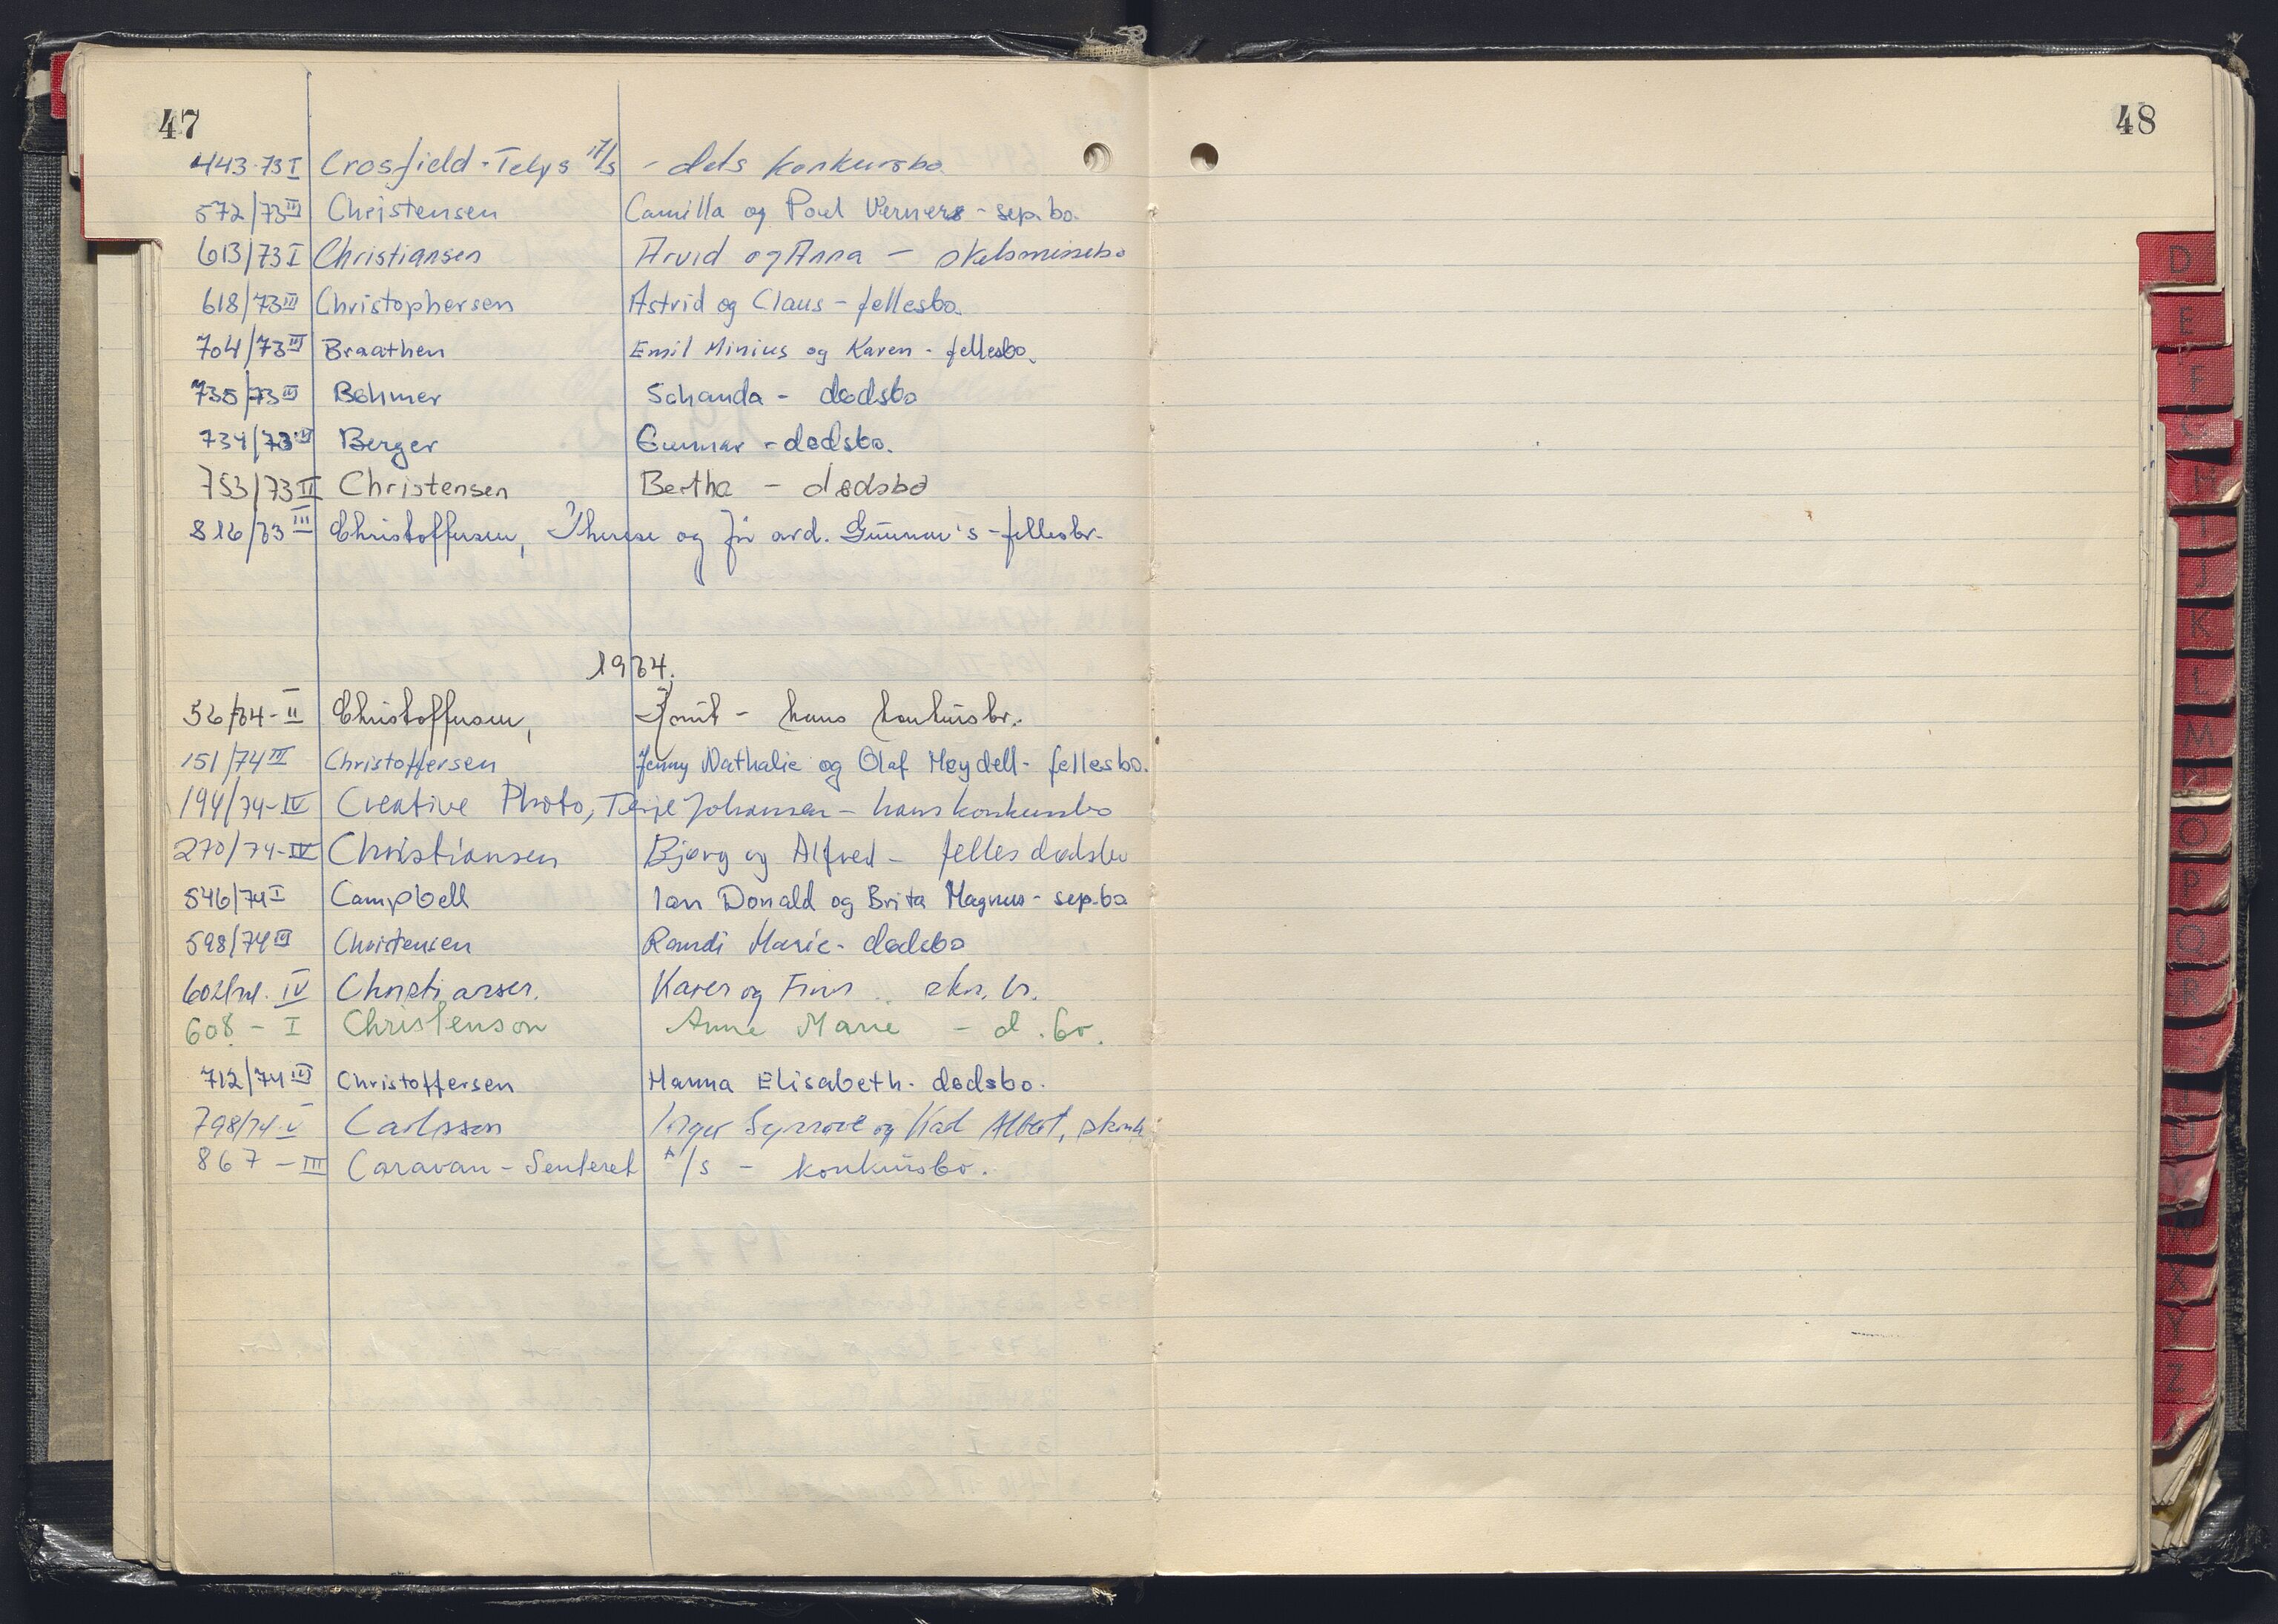 47
443-73 I Crosfield-Telys A/S - dets konkursbo
572/73 III Christensen Camilla og Poul Verners - sep.bo.
613/73 I Christiansen Arvid og Anna - skilsmissebo
618/73 III Christophersen Astrid og Claus - fellesbo.
704/73 III Braathen Emil Minius og Karen - fellesbo.
735/73 III Bøhmer Schanda - dødsbo
734/73 Berger Gunnar - dødsbo.
753/73 II Christensen Bertha - dødsbo
816/73 III Christoffersen, Therese og før avd. Gunnar's - fellesbo.
1974.
56/74-II Christoffersen, Knut - hans konkursbo.
151/74 III Christoffersen Jenny Nathalie og Olaf Heydell - fellesbo.
194/74-IV Creative Photo, Terje Johansen - hans konkursbo
270/74-IV Christiansen Bjørg og Alfred - felles dødsbo
546/74 I Campbell Ian Donald og Brita Magnus - sep.bo
598/74 III Christensen Randi Marie - dødsbo
IV Christiansen. Karen og Finn
608 - I Christenson Anne Marie - d.bo.
712/74 III Christoffersen Hanna Elisabeth - dødsbo.
798/74-V Carlsson Inger Synnøve og Karl Albert,
867 - III Caravan-Senteret A/S - konkursbo.
48
D
E
F
H
I
J
K
L
M
N
O
P
Q
R
U
V
W
X
Y
Z